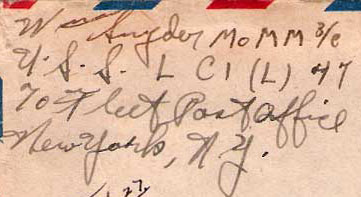 Wm Snyder MoMM 3/c
U.S.S. L C I (L) 47
℅ Fleet Post Office
New York, N.Y.
27